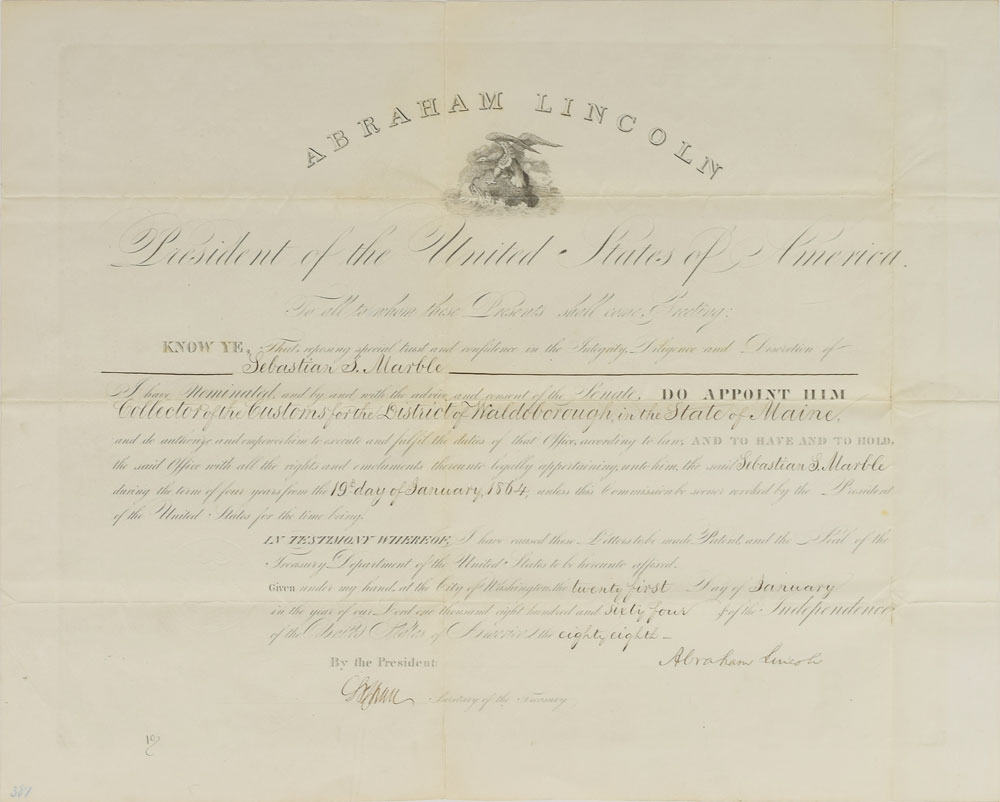 ABRAHAM LINCOLN
President of the United States of America.
To all to whom these Presents shall come, Greeting:
KNOW YE, That, reposing special trust and confidence in the Integrity, Diligence and Discretion of
Sebastian S. Marble
I have Nominated, and by and with the advice and consent of the Senate, DO APPOINT HIM
Collector of the Customs for the District of Waldoborough, in the State of Maine,
and do authorize and empower him to execute and fulfil the duties of that Office, according to law; AND TO HAVE AND TO HOLD,
the said Office with all the rights and emoluments thereunto legally appertaining, unto him, the said Sebastian S. Marble
during the term of four years from the 19th day of January, 1864, unless this Commission be sooner revoked by the President
of the United States for the time being.
IN TESTIMONY WHEREOF, I have caused these Letters to be made Patent, and the Seal of the
Treasury Department of the United States to be hereunto affixed.
Given under my hand, at the City of Washington, the twenty first Day of January
in the year of our Lord one thousand eight hundred and sixty four & of the Independence
of the United States of America, the eighty eighth
By the President:
Abraham Lincoln
Secretary of the Treasury
381